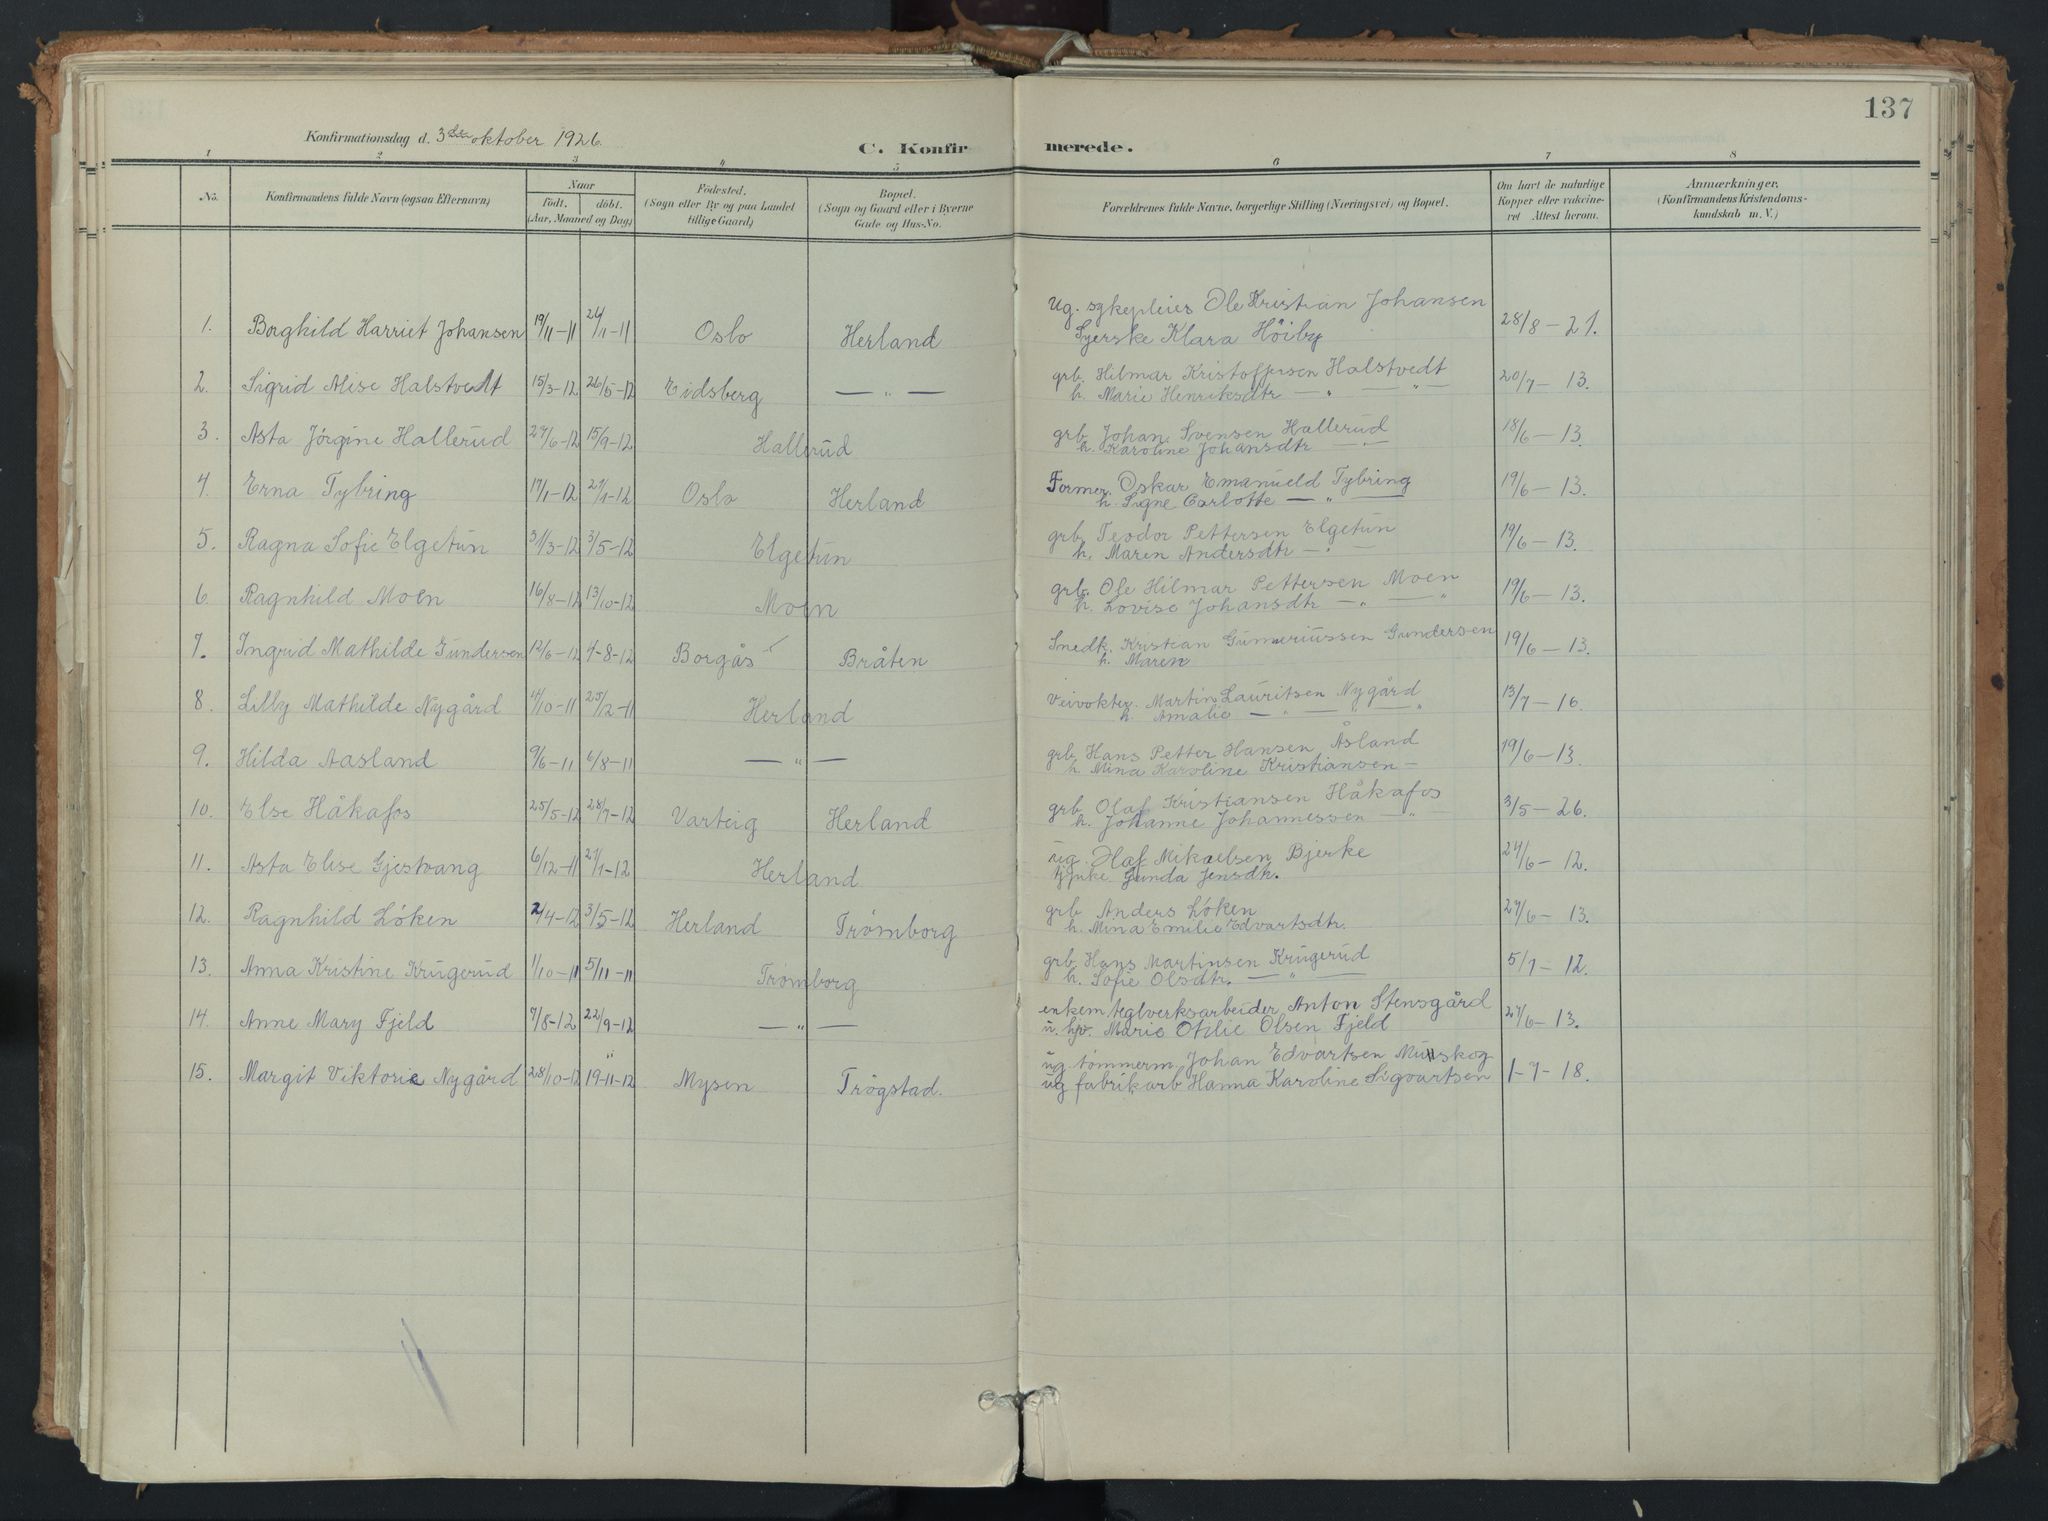 137
Konfirmationsdag d. 3die oktober 1926.
C. Konfirmerede.
1 2 3 4 5 6 7 8
No.
Konfirmandens fulde Navn (ogsaa Efternavn)
Naar
födt. döbt.
(Aar, Maaned og Dag)
Födested.
(Sogn eller By og paa Landet
tillige Gaard)
Bopæl.
(Sogn og Gaard eller i Byerne
Gade og Hus-No.
Forældrenes fulde Navne, borgerlige Stilling (Næringsvei) og Bopæl.
Om havt de naturlige
Kopper eller vakcine-
ret Attest herom.
Anmærkninger.
(Konfirmandens Kristendoms-
kundskab m. V.)
1. Borghild Harriet Johansen 19/11-11 Oslo Herland
Ug. sykepleier Ole Kristian Johansen
Syerske Klara Höiby 28/8-21.
2. Sigrid Alise Halstvedt 15/3-12 26/5-12 Eidsberg — „ —
grb. Hilmar Kristoffersen Halstvedt
h. Marie Henriksdtr — „ — „ — 20/7-13.
3. Asta Jörgine Hallerud 27/6-12 15/9-12 Hallerud
grb. Johan Svensen Hallerud
h. Karoline Johansdtr — „ — 18/6-13.
4. Erna Tybring 17/1-12 27/1-12 Oslo Herland
Former. Oskar Emanueld Tybring
h. Signe Carlotte — „ — 19/6-13.
5. Ragna Sofie Elgetun 31/3-12 3/5-12 Elgetun
grb. Teodor Pettersen Elgetun
h. Maren Andersdtr — „ — 19/6-13.
6. Ragnhild Moen 16/8-12 13/10-12 Moen
grb. Ole Hilmar Pettersen Moen
h. Lovise Johansdtr — „ — „ 19/6-13.
7. Ingrid Mathilde Gundersen 12/6-12 4-8-12 Borgås Bråten
Snedk. Kristian Gunneriussen Gundersen
h. Maren 19/6-13.
8. Lilly Mathilde Nygård 4/10-11 25/2-11 Herland
Veivokter. Martin Lauritsen Nygård
h. Amalie — „ — „ — „ 13/7-16.
9. Hilda Aasland 9/6-11 6/8-11 — „ —
grb. Hans Petter Hansen Åsland
h. Mina Karoline Kristiansen — 19/6-13.
10. Else Håkafos 25/5-12 28/7-12 Varteig Herland
grb. Olaf Kristiansen Håkafos
h. Johanne Johannessen — „ 3/5-26.
11. Asta Elise Gjestvang 6/12-11 27/1-12 Herland
ug. Olaf Mikaelsen Bjerke
Gunda Jensdtr. 24/6-12.
12. Ragnhild Löken 2/4-12 3/5-12 Herland Trömborg
grb Anders Löken
h. Mina Emilie Edvartsdtr. 27/6-13.
13. Anna Kristine Krugerud 1/10-11 5/11-11 Trömborg
grb. Hans Martinsen Krugerud
h. Sofie Olsdtr. — „ — 5/7-12.
14. Anne Mary Fjeld 7/8-12 22/9-12 — „ —
enkem. teglverksarbeider Anton Stensgård
u. hp. Marie Otilie Olsen Fjeld 27/6-13.
15. Margit Viktoria Nygård 28/10-12 19-11-12 Mysen Trögstad.
ug. tömmerm. Johan Edvartsen
ug fabrikarb Hanna Karoline Sigvartsen 1-7-18.